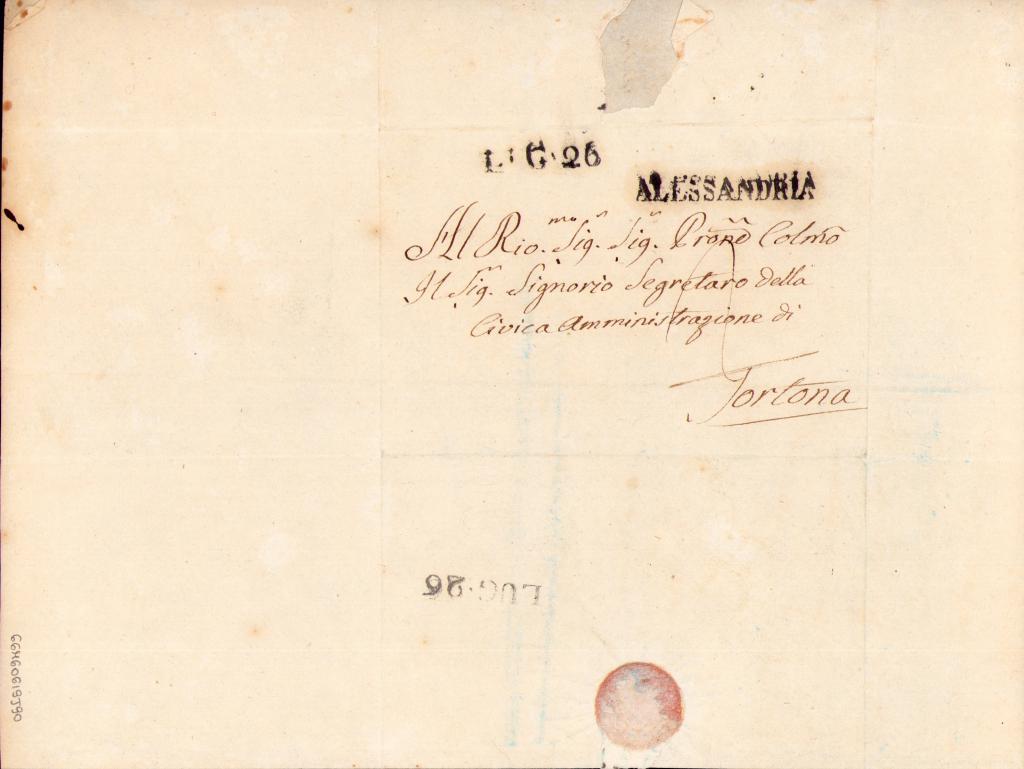 LUG·26
ALESSANDRIA
Al Rio.mo Sig.r Sig.r Prone Colmo
Il Sig.r Signorio Segretaro della
Civica Amministrazione di
Tortona
LUG·26